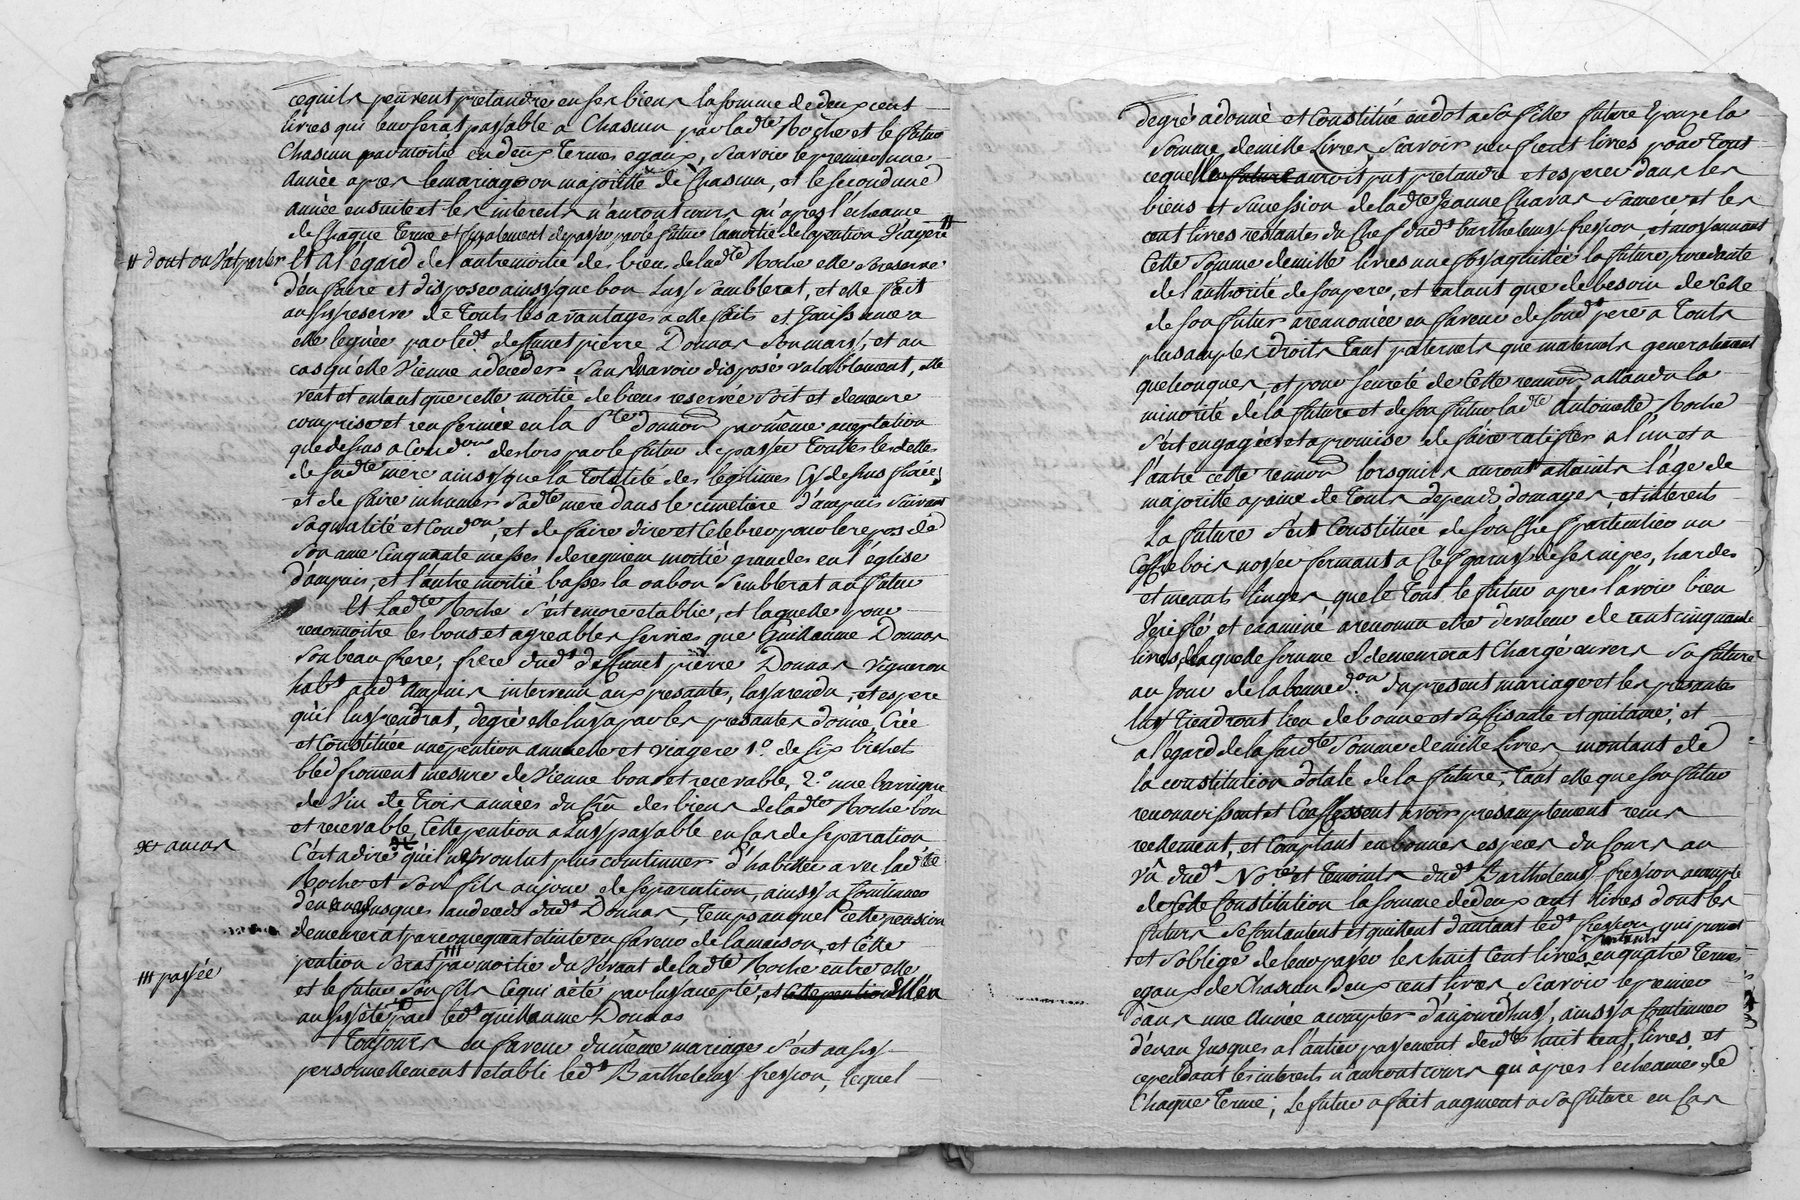 cequils peuvent pretandre en ses biens la somme de deux cent
livres qui leur serat payable a Chascun par ladte Roche et le futur
Chascun par moitié en deux termes egaux, scavoir le premier une
année apres le mariage ou majorité de Chascun, et le second une
année ensuite et les interests n'auront cours qu'apres l'echeance
de Chaque terme et egalement de payer par le futur la moitié de la pention viagere
# dont on vat parler
Et a l'egard de l'autre moitié des biens de ladte Roche elle se reserve
d'en faire et disposer ainsy que bon luy semblerat, et elle fait
aussy reserve de touts les avantages a elle faits et jouissance a
elle leguée par led. deffunct pierre Donnas son mary, et au
cas qu'elle vienne a deceder sans en avoir disposé valablement, elle
veut et entant que cette moitié de biens reservée soit et demeure
comprise et renfermée en la pte donnon par même acceptation
que dessus a Condon des lors par le futur de payer toutes les dettes
de sadte mere ainsy que la totalité des legitimes Cy dessus fixées
et de faire inhumer sadte mere dans le cimetiere d'ampuis suivant
sa qualité et Condon, et de faire dire et Celebrer pour le repos de
son ame Cinquante messes de requiem moitié grandes en l'église
d'ampuis, et l'autre moitié basses la ou bon semblerat au futur
Et Ladte Roche s'est encore etablie, et laquelle pour
reconnoitre les bons et agreables services que Guillaume Donnas
son beau frere, frere dudt deffunct pierre Donnas vigneron
habt audt Ampuis intervenu aux presantes, luy a rendu, et espere
qu'il luy rendrat, degré elle luy a par les presantes donné, Créé
et Constituée une pention annuelle et viagere 1.o de six bichets
bled froment mesure de Vienne bon et recevable, 2.o une barrique
de vin de trois années du crû des biens de ladte Roche bon
et recevable, Cette pention a luy payable en cas de separation
C'est a dire qu'il ne voulut plus continuer d'habitter avec ladte
# au cas
Roche et son fils au jour de separation, ainsy a Continuer
d'en an jusques au deceds dudt Donnas, temps auquel cette pension
demeurerat par consequent eteinte en faveur de la maison, et Cette
pention serat par moitié du vivant de ladte Roche entre elle
### payée
et le futur son fils Ce qui a été par luy accepté, et cette pention Ell'en
aussy été par ledt guillaume Donnas
Toujours en faveur du même mariage s'est aussy
personnellement etabli ledt Barthelemy fression, lequel
degré a donné et Constitué en dot a sa fille future Epouze la
somme de mille Livres scavoir neuf cent livres pour tout
ce que la future auroit put pretandre et esperer dans les
biens et succession de ladte Jeanne Chavas sa mere et les
cent livres restantes du Chef dudt barthelemy fression et moyennant
Cette somme de mille livres une fois aquittée la future procedante
de l'authorité de son pere, et entant que de besoin de Celle
de son futur a renoncée en faveur de sondt pere a touts
plus amples droits tant paternels que maternels generalement
quelconques, et pour seureté de Cette renonon attandu la
minorité de la future et de son futur ladte Antoinette Roche
s'est engagée et a promise de faire ratiffier a l'un et a
l'autre cette renonon lorsquils auront attaints l'âge de
majorité a peine de touts depends domages et interests
La future s'est Constituée de son Chef particulier un
Coffre bois noyer fermant a Clef garny de ses nipes, hardes
et menuts linges que le tout le futur apres l'avoir bien
verifié et examiné a reconnu etre de valeur de cent cinquante
livres, de laquelle somme il demeurerat Chargé envers sa future
au jour de la benedon du present mariage et les presantes
luy tiendront lieu de bonne et suffisante et quitance, et
a l'égard de la susdte somme de mille Livres montant de
la constitution dotale de la future, tant elle que son futur
reconnoissent et Confessent avoir presentement recus
reellement, et Comptant en bonnes especes du Cours au
vû dudt Nore et temoints dudt Barthelemy fression a compte
de cette Constitution la somme de deux cent livres dont les
futurs se contantent et quittent d'autant ledt fression qui promet
et s'oblige de leur payer les huit Cent livres restantes en quatre termes
egaux de Chascun deux cent livres scavoir le premier
dans une Année a compter d'aujourd'huy, ainsy a Continuer
d'en an jusques a l'entier payement desdts huit cent livres, et
cependant les interests n'auront cours qu'apres l'echeance de
Chaque terme; Le futur a fait augment a sa future en Cas